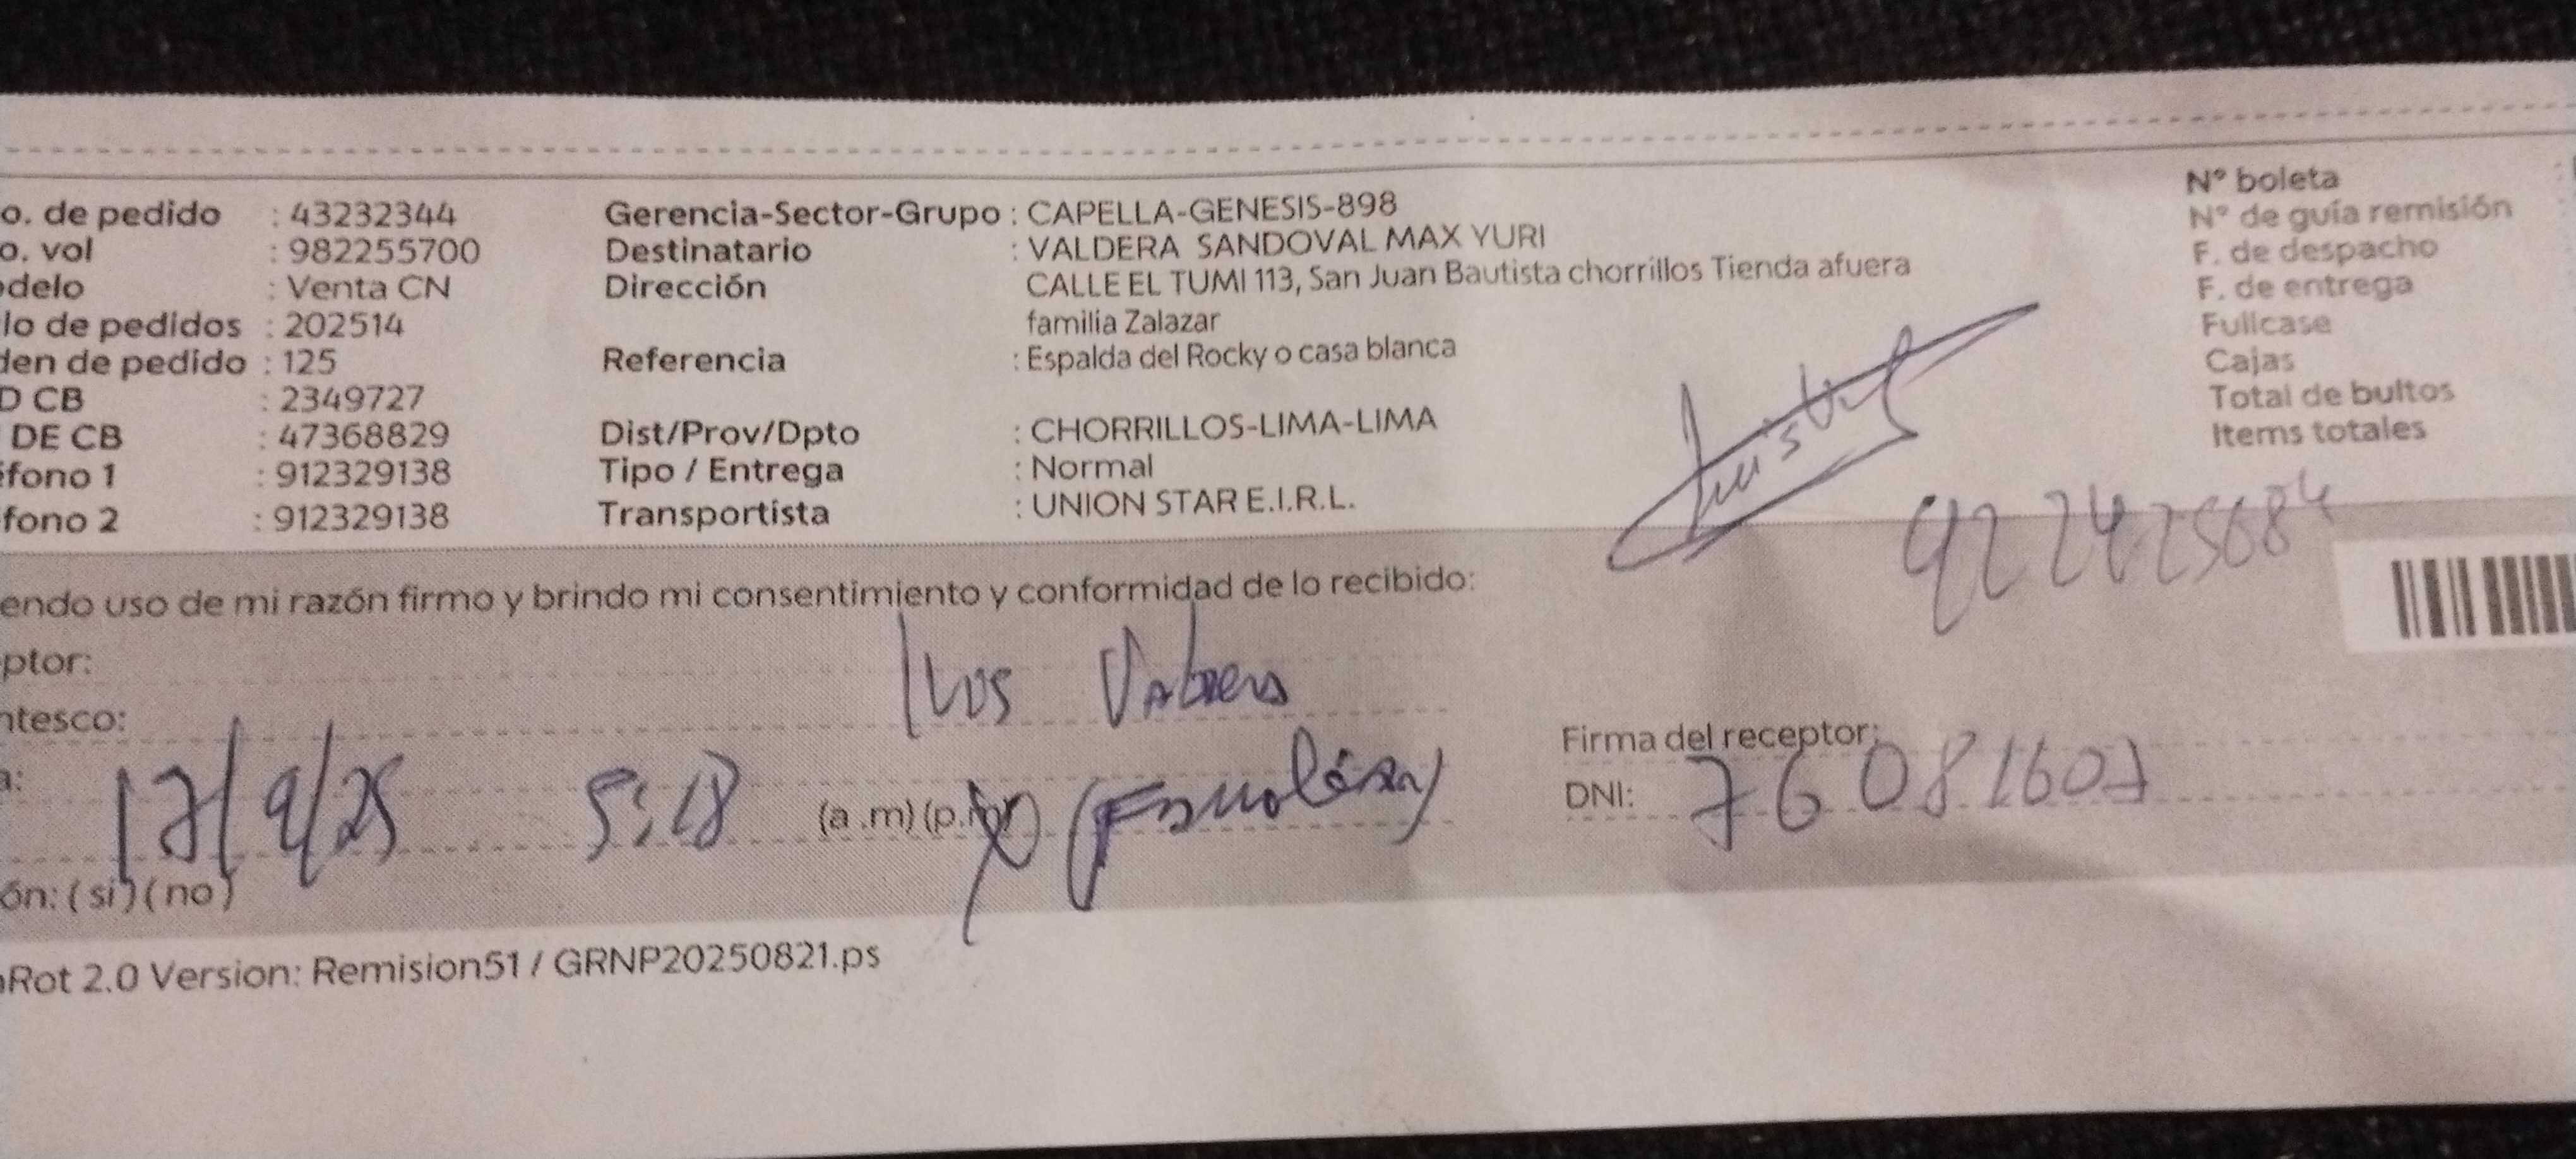 o. de pedido : 43232344 Gerencia-Sector-Grupo : CAPELLA-GENESIS-898 N° boleta
o. vol : 982255700 Destinatario : VALDERA SANDOVAL MAX YURI N° de guía remisión
delo : Venta CN Dirección CALLE EL TUMI 113, San Juan Bautista chorrillos Tienda afuera F. de despacho
lo de pedidos : 202514 familia Zalazar F. de entrega
den de pedido : 125 Referencia : Espalda del Rocky o casa blanca Fullcase
D CB : 2349727 Cajas
DE CB : 47368829 Dist/Prov/Dpto : CHORRILLOS-LIMA-LIMA Total de bultos
fono 1 : 912329138 Tipo / Entrega : Normal Items totales
fono 2 : 912329138 Transportista : UNION STAR E.I.R.L.
endo uso de mi razón firmo y brindo mi consentimiento y conformidad de lo recibido:
ptor:
ntesco:
Firma del receptor:
a: 5:18 (a .m) (p.m) DNI: 76081607
ón: ( si ) ( no )
Rot 2.0 Version: Remision51 / GRNP20250821.ps